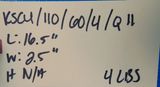 KSCU/110/60/4/Q11
L: 16.5"
W: 2.5"
H N/A
4 LBS